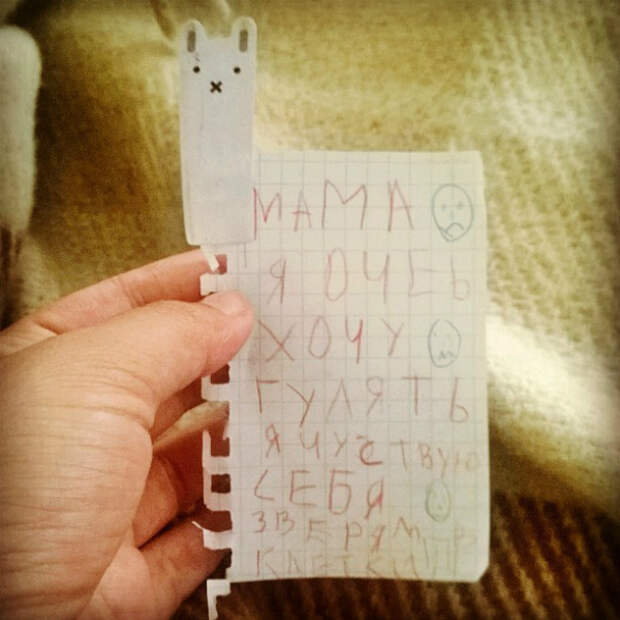 МАМА
Я ОЧЕЬ
ХОЧУ
ГУЛЯТЬ
Я ЧУСТВУЮ
СЕБЯ
ЗВЕРЯМ
КЛЕТКИ